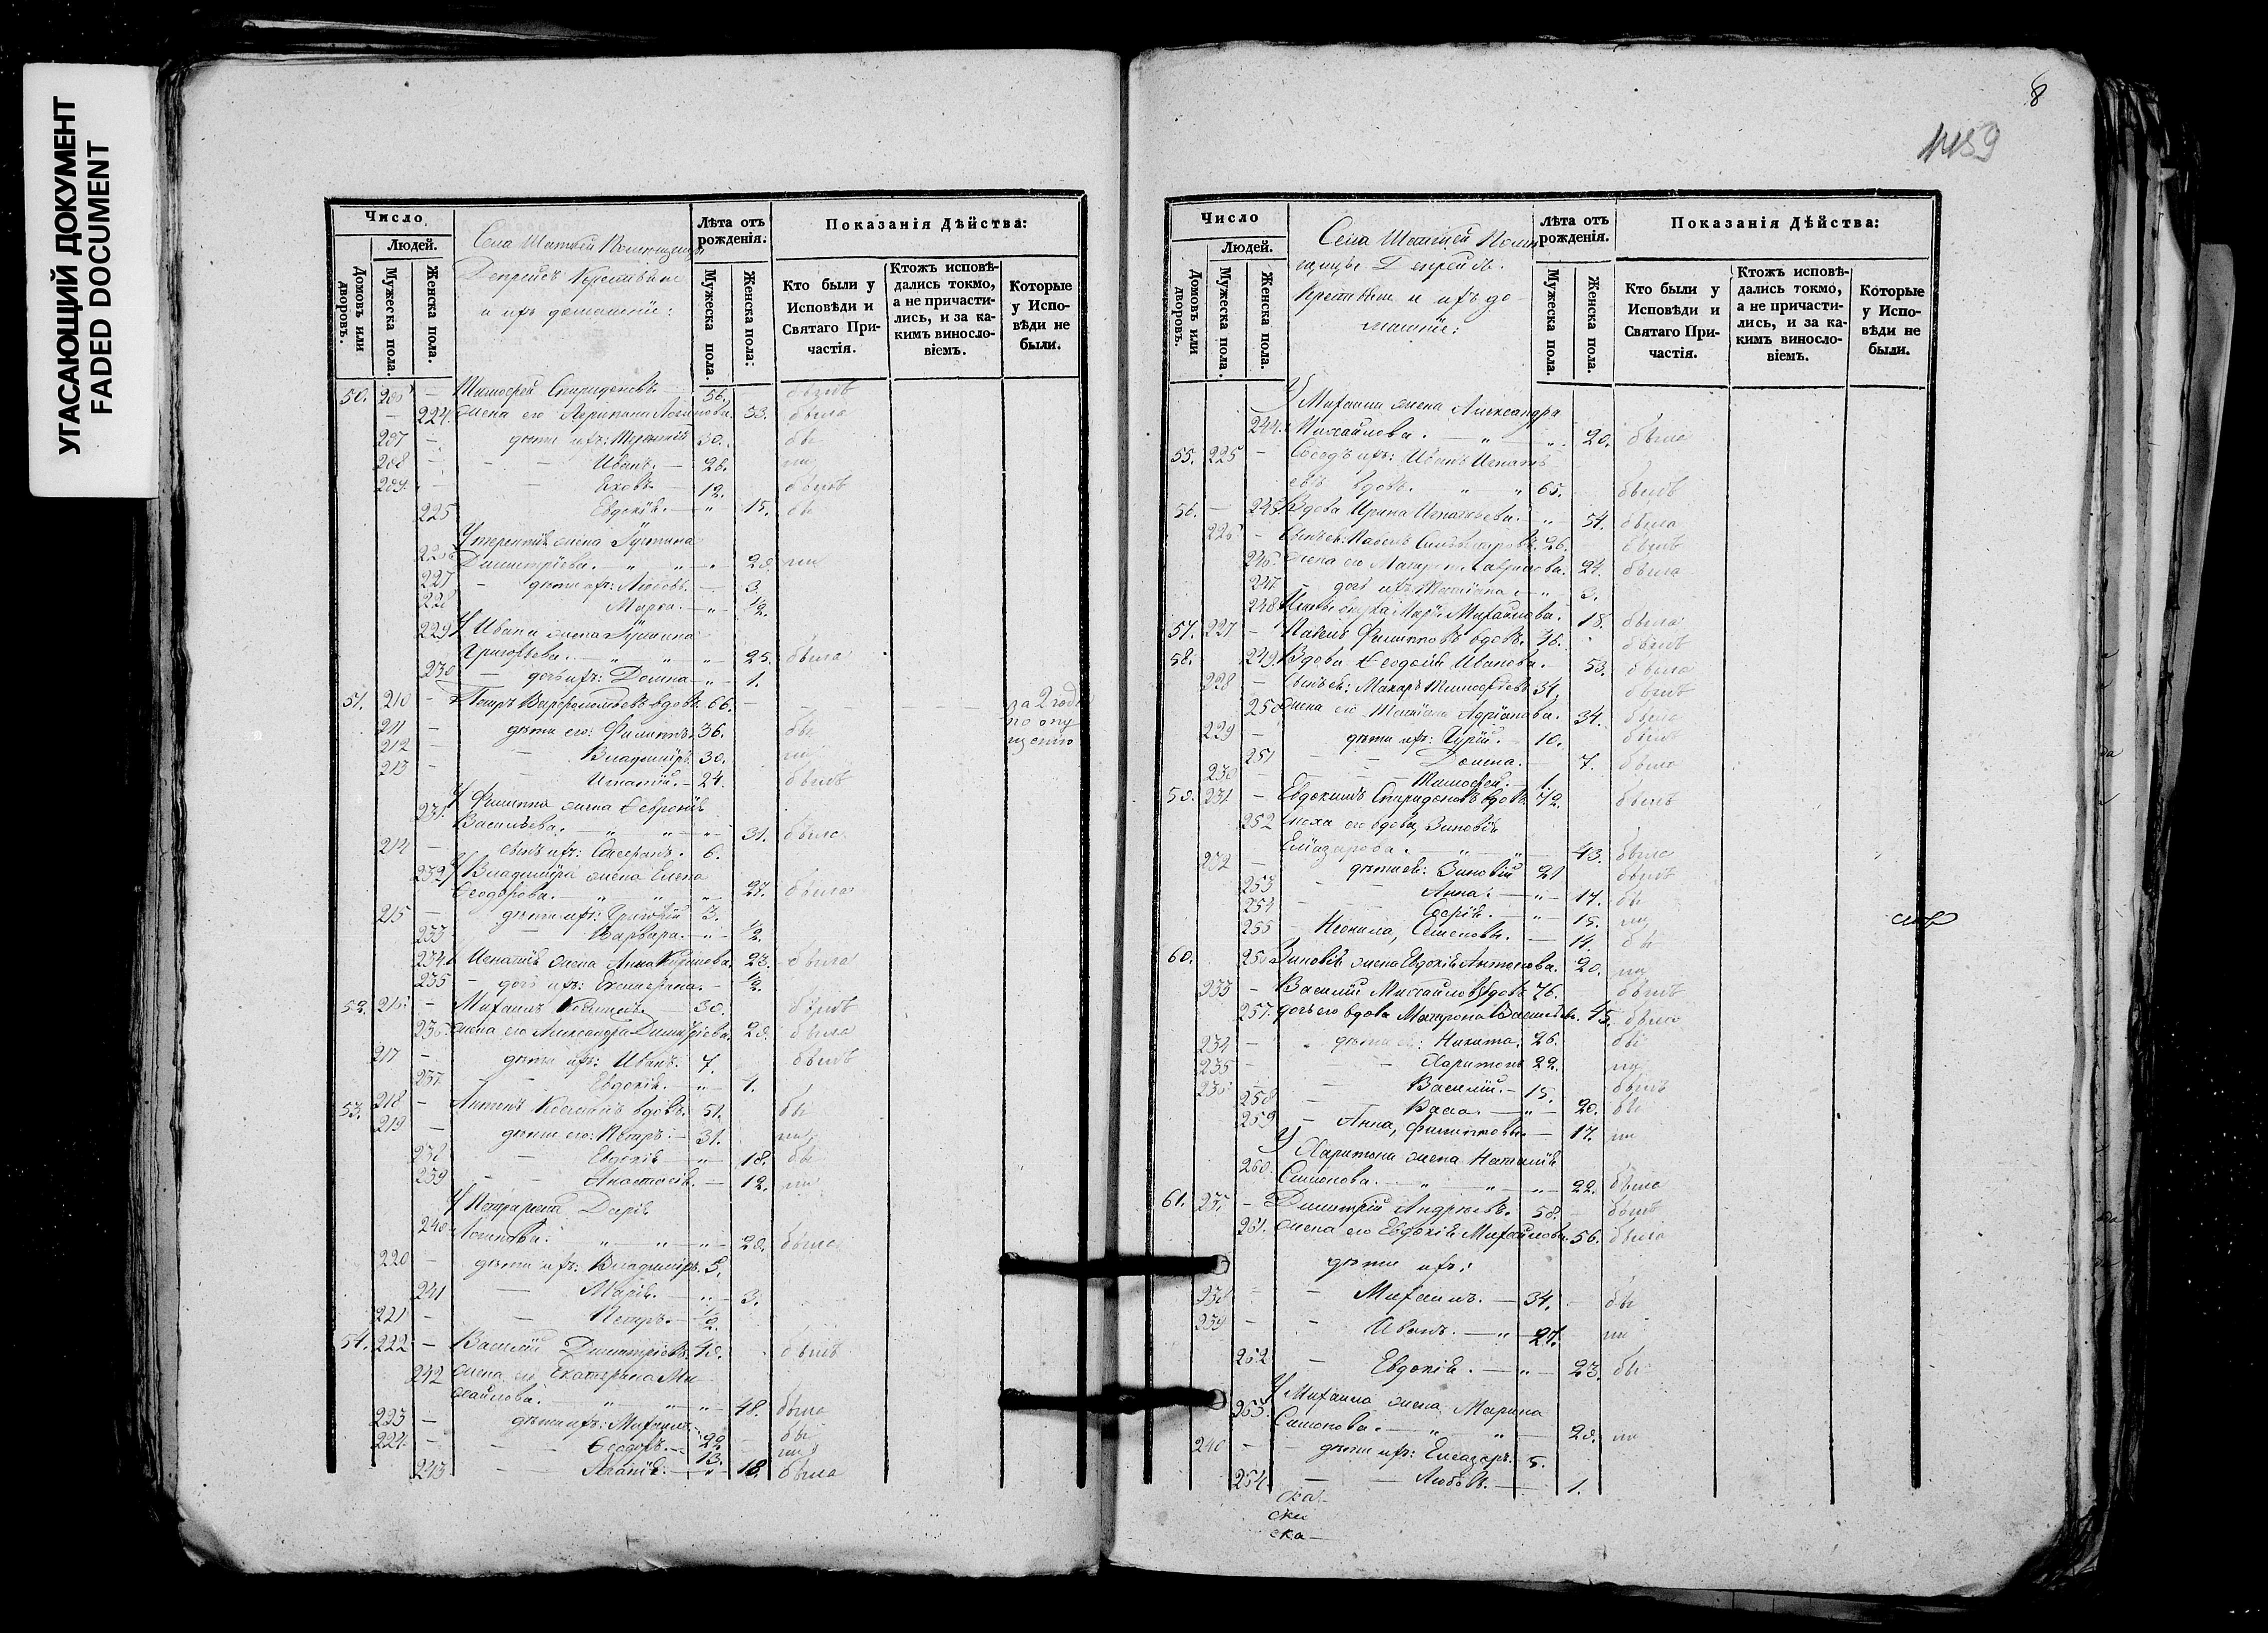 УГАСАЮЩИЙ ДОКУМЕНТ
FADED DOCUMENT
Число
Людей.
Домовъ или дворовъ.
Мужеска пола.
Женска пола.
Села
крестьяне
и ихъ домашніи:
Лѣта отъ рожденія.
Мужеска пола.
Женска пола:
Показанія Дѣйства:
Кто были у Исповѣди и Святаго Причастія.
Ктожъ исповѣдались токмо, а не причастились, и за какимъ винословіемъ.
Которые у Исповѣди не были.
50. 206 — Тимофей Спиридоновъ 56. былъ
— 224. жена его Агрипина 53. была
207 — дѣти ихъ: Терентій 30. бы
208 — Иванъ. — 26. ли
209. — 12. былъ
225 Евдокія. — 15. бы
У Терентія жена Іустина
226 Димитріева. 28. ли
227 — дѣти ихъ: Любовь. 3.
228 Марѳа. — 1/2.
229 У Ивана жена Іустина
Григорьева. 25. была
230 — дочь ихъ: Домна 1.
51. 210 — Петръ Варфоломеевъ вдовъ. 66. — за 2 года
по опу
щенію
211 — дѣти его: Филиппъ. 36. бы
212 — Владиміръ. 30. ли
213 Игнатій. — 24. былъ
У Филиппа жена Февронія
231. Васильева. 31. была
214 — сынъ ихъ: Стефанъ. 6.
232 У Владиміра жена Елена
Ѳеодорова. 27. была
215 — дѣти ихъ: Григорій 3.
233 — Варвара. 1/2.
234 У Игнатія жена Анна 23. была
235 — дочь ихъ: Екатерина. — 1/2.
52. 216. — Михаилъ Козминъ 30. былъ
236. жена его Александра Димитріева. 28. была
217 — дѣти ихъ: Иванъ. 7. былъ
237 — Евдокія. 1.
53. 218 — Антипъ Козминъ вдовъ. 51. бы
219 — дѣти его: Петръ. — 31. ли
238 — Евдокія 18. бы
239 — Анастасія. — 12. ли
У Петра жена Дарія
240 Логинова. 28. была
220 — дѣти ихъ: Владиміръ. 5.
241 — Марія. 3.
221 — Петръ. 1/2.
54. 222 — Василій Димитріевъ. 48. былъ
242 жена его Екатерина Ми
хайлова. 48. была
223 — дѣти ихъ: Михаилъ 22 бы
224. — Ѳеодоръ. — 13. ли
243 — Агафія. 18. была
8
1459
Число
Людей.
Домовъ или дворовъ.
Мужеска пола.
Женска пола.
Села
крестьяне и ихъ до
машніи:
Лѣта отъ рожденія.
Мужеска пола.
Женска пола.
Показанія Дѣйства:
Кто были у Исповѣди и Святаго Причастія.
Ктожъ исповѣдались токмо, а не причастились, и за какимъ винословіемъ.
Которые у Исповѣди не были.
У Михаила жена Александра
244. Михайлова. 20. была
55. 225 — Сосѣдъ ихъ: Иванъ Игнать
евъ вдовъ. 65. былъ
56. — 245. Вдова Ирина Игнатьева. 54. была
226 — сынъ ея: Павелъ 26. былъ
246. жена его 24. была
247 — дочь ихъ Татіана 3.
248 Михайлова. 18. была
57. 227 — Павелъ Филипповъ вдовъ. 76. былъ
58. 249. Вдова Ѳеодосія Иванова. 53. была
228 — сынъ ея: Макаръ Тимофеевъ 34. былъ
250 жена его Татіана Адріанова. 34. была
229 — дѣти ихъ: Гурій. 10. былъ
251 — Домна. 7. была
230 — Тимофей. 1.
59. 231 — Евдокимъ Спиридоновъ вдовъ. 72. былъ
252 сноха его вдова, Зиновія
Еліазарова. 43. была
232 — дѣти ея: Зиновій 21 былъ
253 — Анна. 17. бы
254 — Софія. 15. ли
255 — Неонила, Семеновы. 14. бы
60. 256 Зиновія жена Евдокія Антонова. 20. ли
233 — Василій Михайловъ вдовъ 76. былъ
257. дочь его вдова Матрона Васильева. 45. была
234 — дѣти ея: Никита. 26. бы
235 — Харитонъ 22. ли
236 — Василій. — 15. былъ
258 — Васса. 20. бы
259 — Анна, Филипповы. 17. ли
У Харитона жена Наталія
260. Симонова. 22. была
61. 237 — Димитрій Андреевъ. 58. былъ
261. жена его Евдокія Михайлова. 56. была
дѣти ихъ:
238 — Михаилъ. — 34. бы
239 — Иванъ. 27. ли
262 — Евдокія. 23. бы
У Михаила жена Марина
263 Симонова. 28. ли
240 — дѣти ихъ: Елеазаръ. 5.
264 — Любовь. 1.
ска
ски
ска